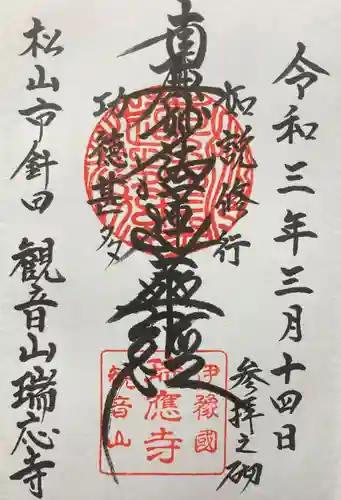 令和三年三月十四日
参拝之砌
如説修行
南無妙法蓮華経
功徳甚多
松山市針田 観音山瑞応寺
伊豫國
瑞應寺
観音山